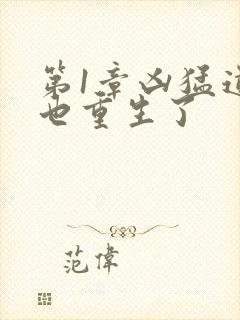 第1章凶猛道
也重生了
范偉